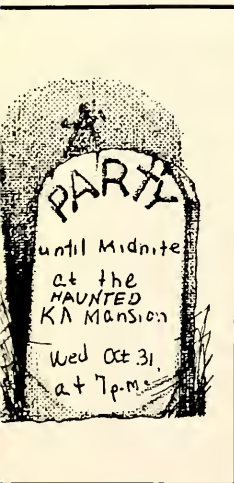 PARTY
until Midnite
at the
HAUNTED
KΛ Mansion
Wed Oct 31,
at 7p.m.